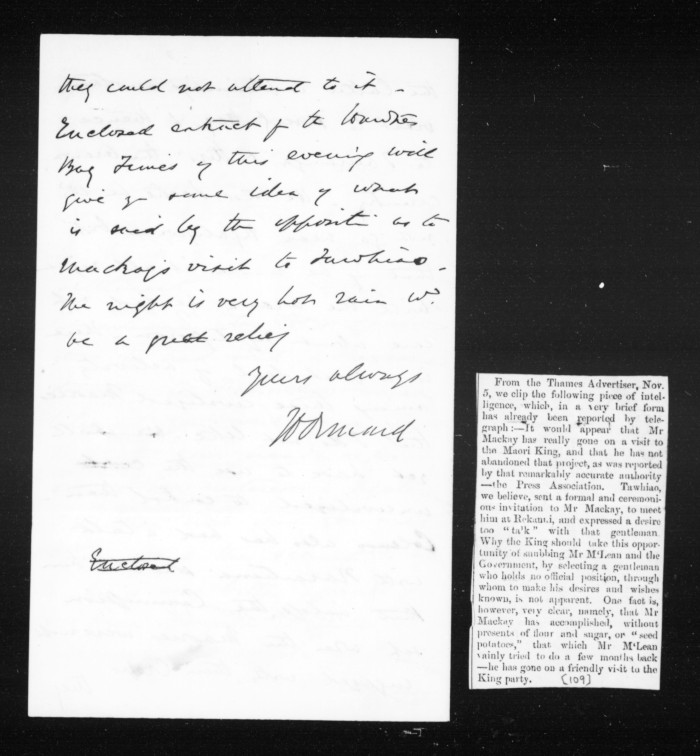 they could not attend to it -
Enclosed extract fr the Hawkes
Bay Times of this evening will
give yr some idea of what
is said by the opposition as to
Mackay's visit to Tawhiao -
The night is very hot rain wd.
be a great relief
Yours always
JD Ormond
Enclosed
From the Thames Advertiser, Nov.
5, we clip the following piece of intel-
ligence, which, in a very brief form
has already been reported by tele-
graph :—It would appear that Mr
Mackay has really gone on a visit to
the Maori King, and that he has not
abandoned that project, as was reported
by that remarkably accurate authority
—the Press Association. Tawhiao,
we believe, sent a formal and ceremoni-
ous invitation to Mr Mackay, to meet
him at Rekanui, and expressed a desire
too "ta'k" with that gentleman.
Why the King should take this oppor-
tunity of snubbing Mr M'Lean and the
Government, by selecting a gentleman
who holds no official position, through
whom to make his desires and wishes
known, is not apparent. One fact is,
however, very clear, namely, that Mr
Mackay has accomplished, without
presents of flour and sugar, or "seed
potatoes," that which Mr M'Lean
vainly tried to do a few months back
—he has gone on a friendly visit to the
King party. [109]